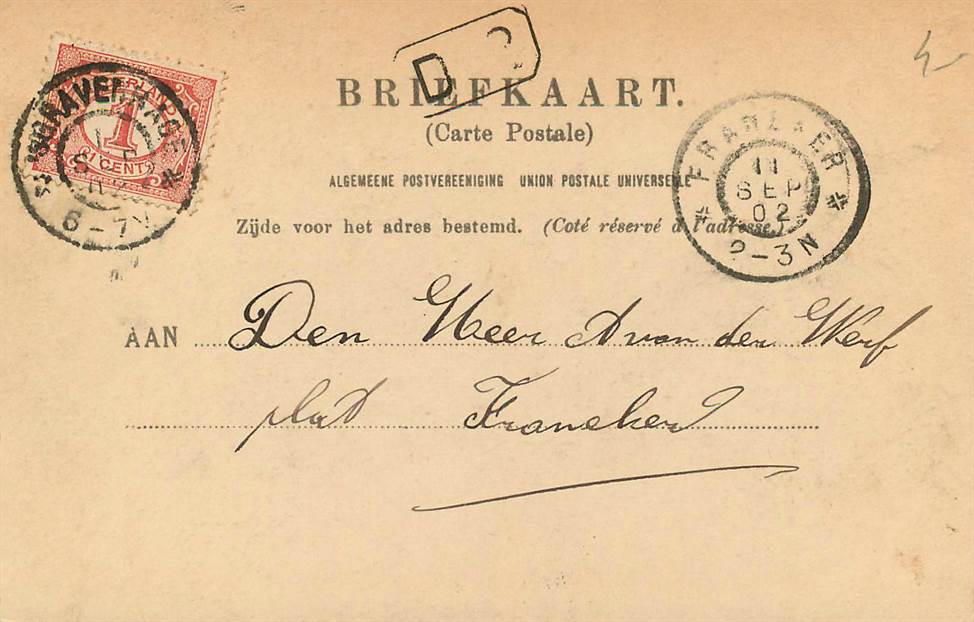 D
BRIEFKAART.
(Carte Postale)
ALGEMEENE POSTVEREENIGING UNION POSTALE UNIVERSELLE
Zijde voor het adres bestemd. (Coté réservé à l'adresse.)
NEDERLAND
1
CENT
'SGRAVENHAGE
SEP
6-7V
FRANEKER
11
SEP
02
2-3N
AAN Den Heer A van der Werf
Franeker